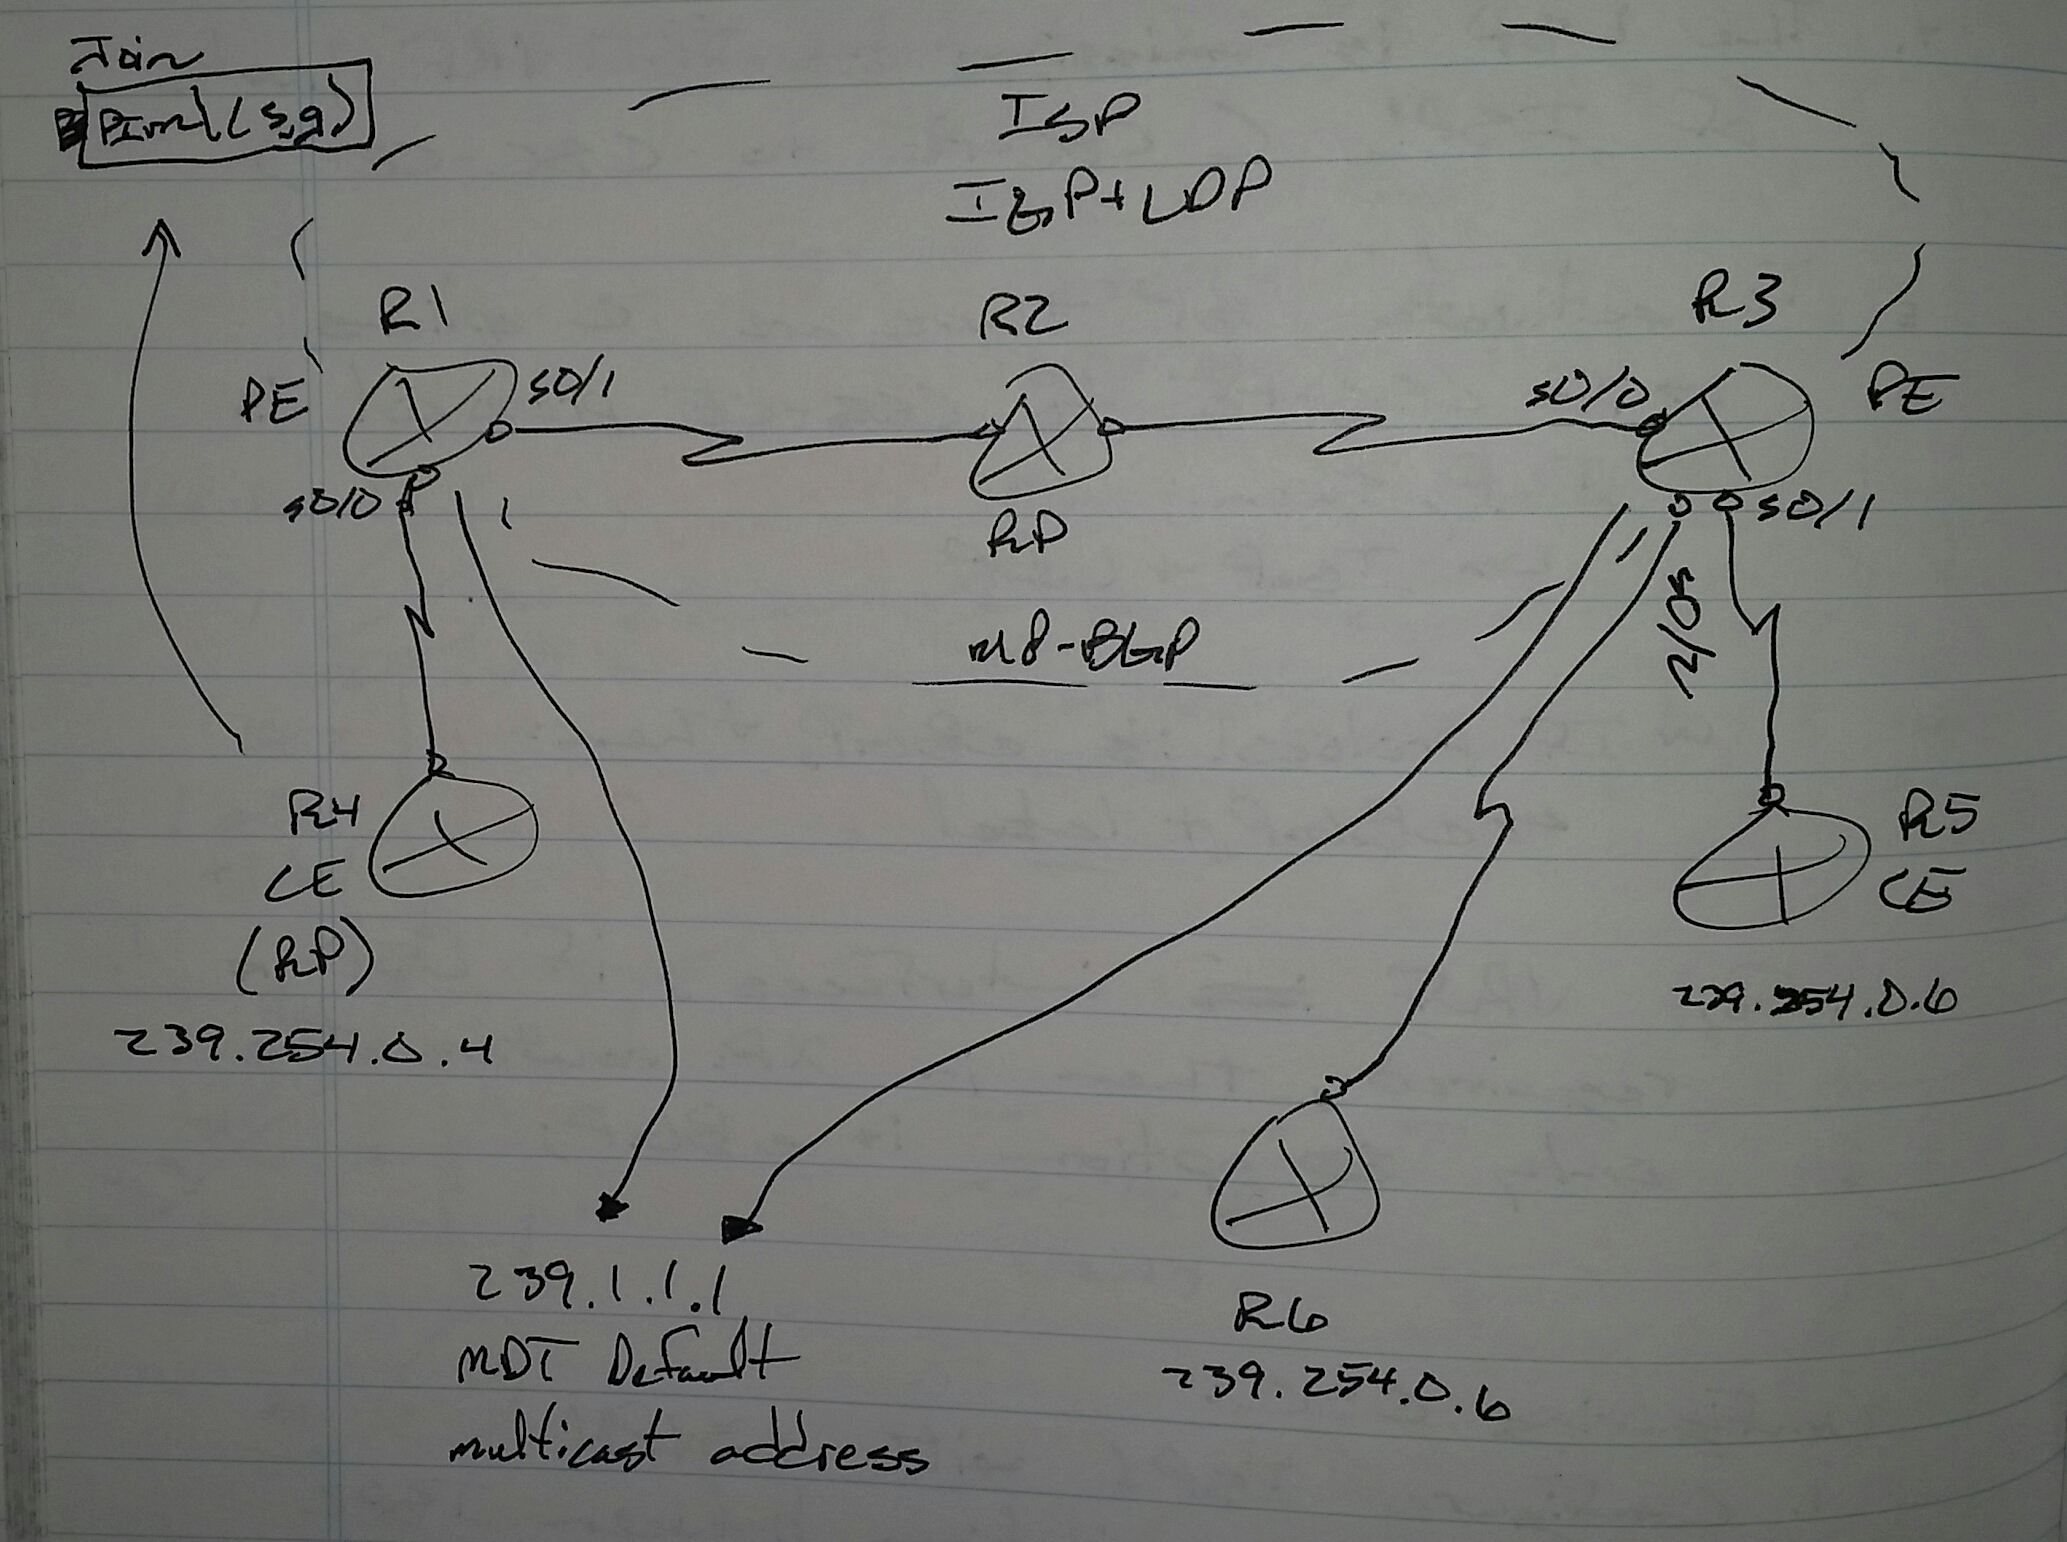 Join
PIM (S,g)
ISP
IGP+LDP
R1
R2
R3
PE
S0/1
S0/0
PE
S0/0
RP
S0/1
S0/2
MP-BGP
R4
CE
(RP)
239.254.0.4
R5
CE
239.254.0.6
239.1.1.1
MDT Default
multicast address
R6
239.254.0.6